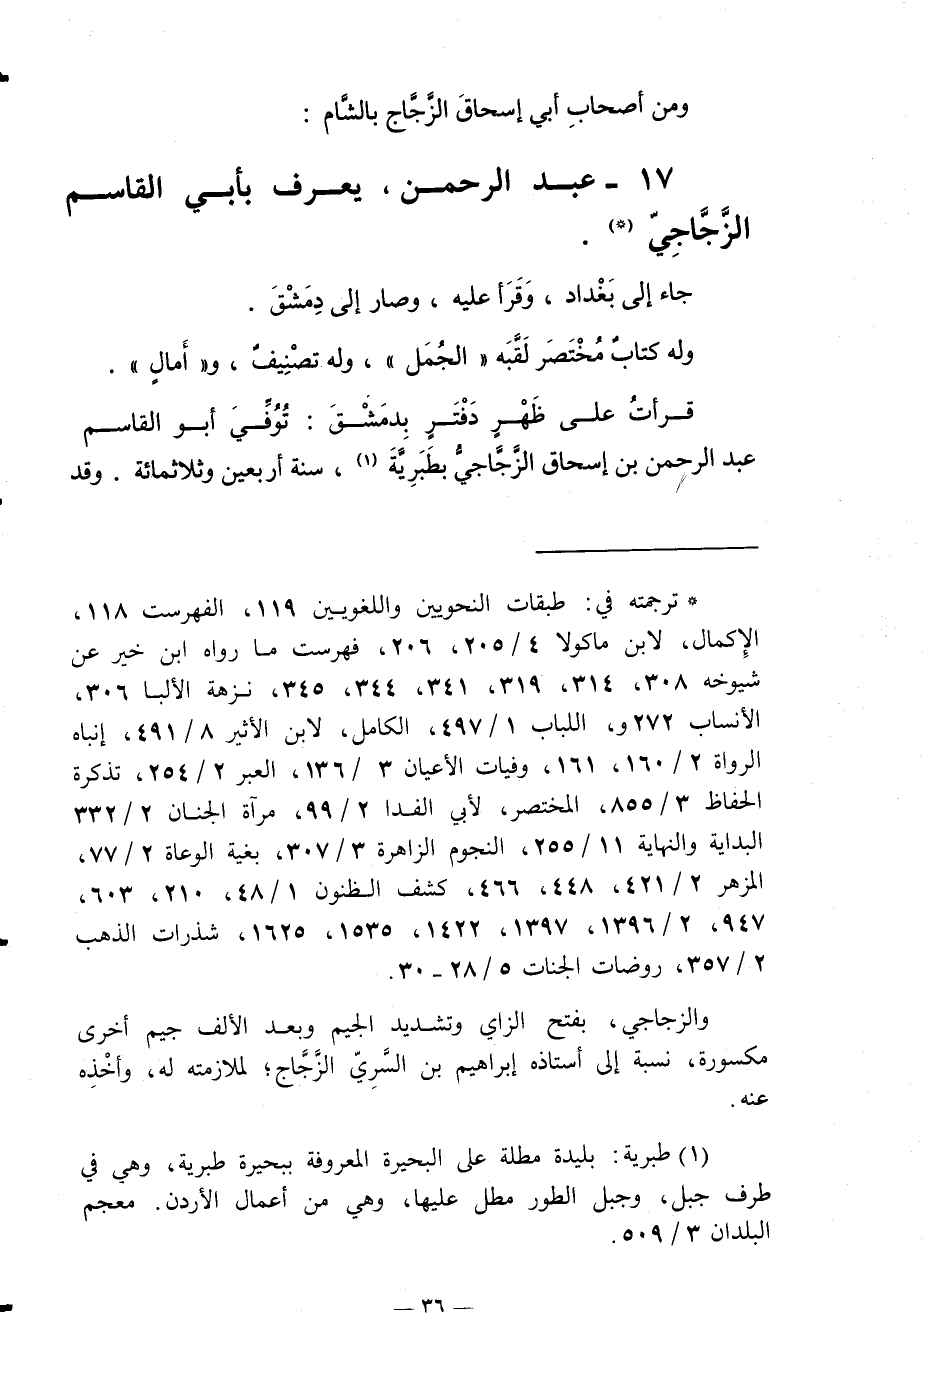 ومن أصحابِ أبي إسحاقَ الزَّجَّاج بالشَّام :
١٧ ـ عبد الرحمن ، يعرف بأبي القاسم
الزَّجَّاجِيّ (*) .
جاء إلى بَغْداد ، وَقَرَأ عليه ، وصار إلى دِمَشْقَ .
وله كتابٌ مُخْتَصَر لَقَّبَه « الجُمَل » ، وله تصْنِيفٌ ، و« أَمالٍ » .
قرأتُ على ظَهْرٍ دَفْتَرٍ بِدمَشْقَ : تُوُفِّيَ أبو القاسم
عبد الرحمن بن إسحاق الزَّجَّاجيُّ بطَبَرِيَّةَ (١) ، سنة أربعين وثلاثمائة . وقد
* ترجمته في: طبقات النحويين واللغويين ١١٩، الفهرست ١١٨،
الإكمال، لابن ماكولا ٤ /٢٠٥، ٢٠٦، فهرست ما رواه ابن خير عن
شيوخه ٣٠٨، ٣١٤، ٣١٩، ٣٤١، ٣٤٤، ٣٤٥، نزهة الألبا ٣٠٦،
الأنساب ٢٧٢و، اللباب ١ /٤٩٧، الكامل، لابن الأثير ٨ /٤٩١، إنباه
الرواة ٢ /١٦٠، ١٦١، وفيات الأعيان ٣ /١٣٦، العبر ٢ /٢٥٤، تذكرة
الحفاظ ٣ /٨٥٥، المختصر، لأبي الفدا ٢ /٩٩، مرآة الجنان ٢ /٣٣٢
البداية والنهاية ١١ /٢٥٥، النجوم الزاهرة ٣ /٣٠٧، بغية الوعاة ٢ /٧٧،
المزهر ٢ /٤٢١، ٤٤٨، ٤٦٦، كشف الظنون ١ /٤٨، ٢١٠، ٦٠٣،
٩٤٧، ٢ /١٣٩٦، ١٣٩٧، ١٤٢٢، ١٥٣٥، ١٦٢٥، شذرات الذهب
٢ /٣٥٧، روضات الجنات ٥ /٢٨ ـ ٣٠.
والزجاجي، بفتح الزاي وتشديد الجيم وبعد الألف جيم أخرى
مكسورة، نسبة إلى أستاذه إبراهيم بن السَّرِيّ الزَّجَّاج؛ لملازمته له، وأخْذِه
عنه.
(١) طبرية: بليدة مطلة على البحيرة المعروفة ببحيرة طبرية، وهي في
طرف جبل، وجبل الطور مطل عليها، وهي من أعمال الأردن. معجم
البلدان ٣ /٥٠٩.
— ٣٦ —